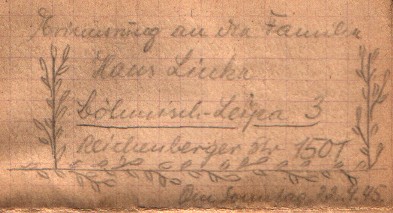 Erinnerung an die Familie
Hans Linke
Böhmisch-Leipa 3
Reichenberger Str 1501
Am Sonntag 22.4.45